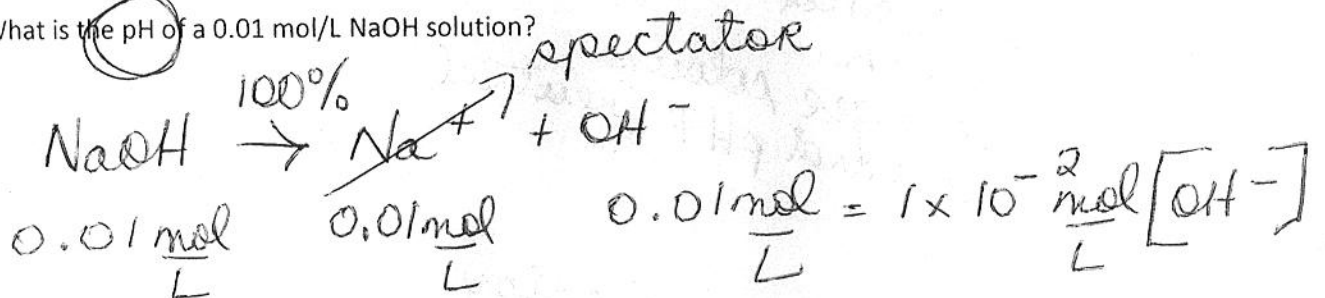 What is the pH of a 0.01 mol/L NaOH solution?
spectator
100%
NaOH → Na⁺ + OH⁻
0.01 mol/L 0.01 mol/L 0.01 mol/L = 1 x 10⁻² mol/L [OH⁻]